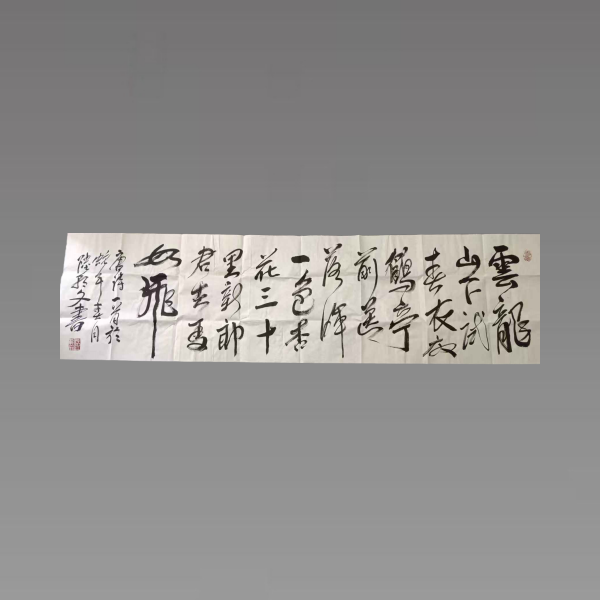 雲龍
山下試
春衣放
鶴亭
前送
落暉
一色杏
花三十
里新郎
君去馬
如飛
唐诗一首於
蛇年春月
陸文書